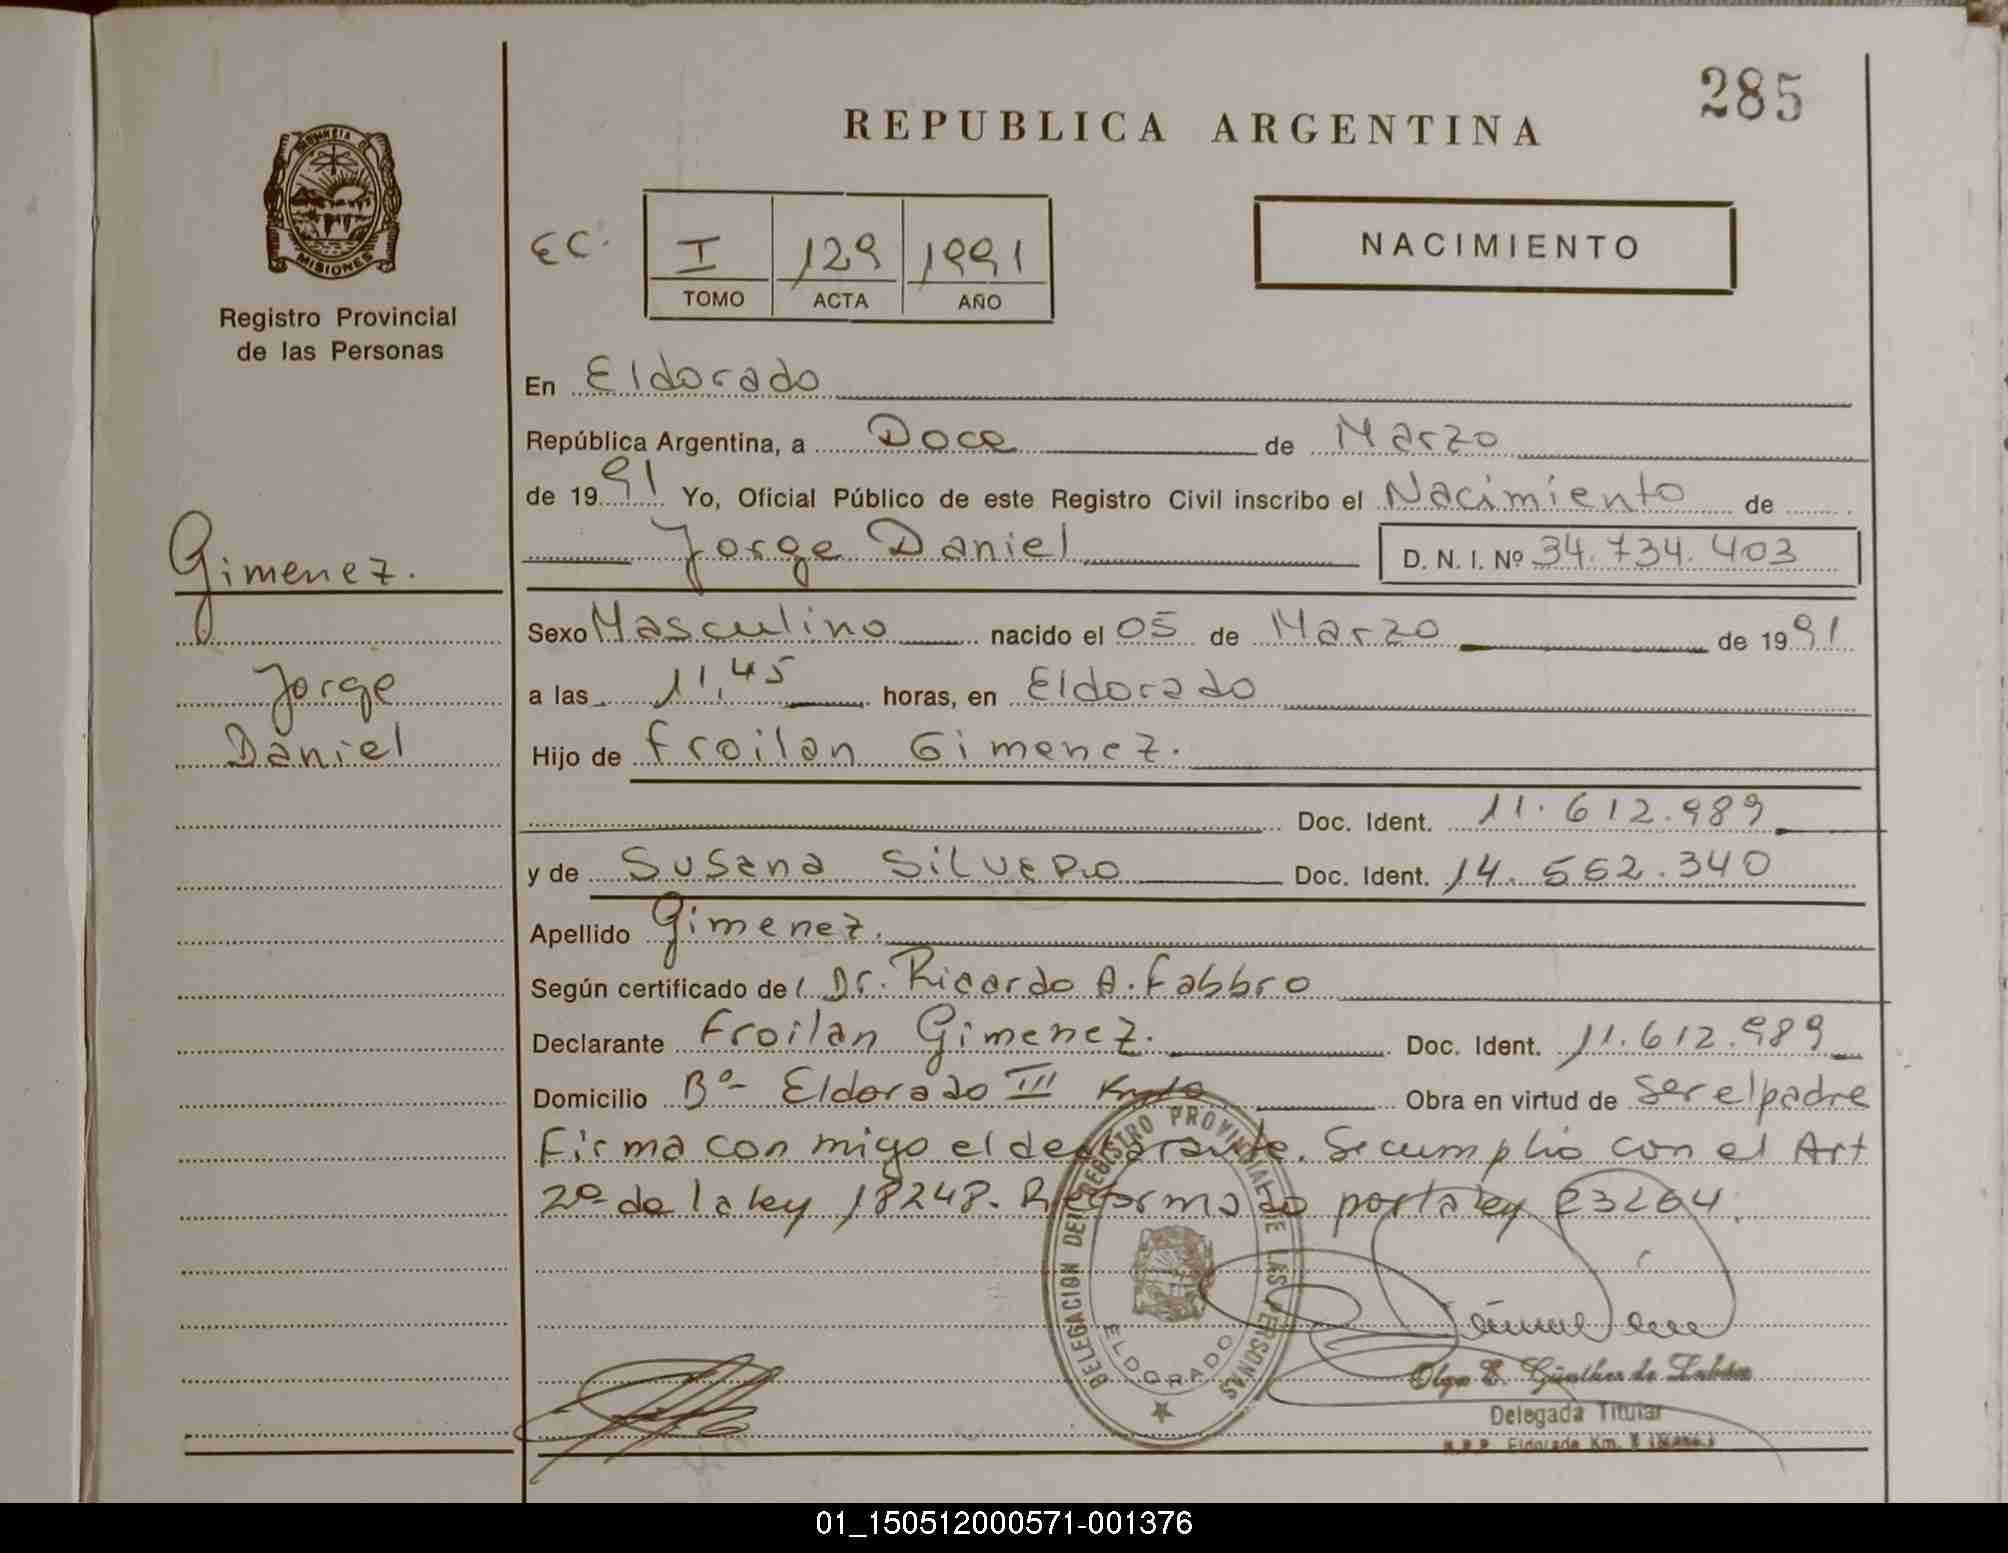 285
REPUBLICA ARGENTINA
PROVINCIA
MISIONES
Registro Provincial
de las Personas
EC.
I 129 1991
TOMO ACTA AÑO
NACIMIENTO
En Eldorado
República Argentina, a Doce de Marzo
de 1991 Yo, Oficial Público de este Registro Civil inscribo el Nacimiento de
Jorge Daniel D. N. I. Nº 34.734.403
Gimenez.
Jorge
Daniel
Sexo Masculino nacido el 05 de Marzo de 1991
a las 11,45 horas, en Eldorado
Hijo de Froilan Gimenez.
Doc. Ident. 11.612.989
y de Susana Silvero Doc. Ident. 14.552.340
Apellido Gimenez.
Según certificado del Dr. Ricardo A. Fabbro
Declarante Froilan Gimenez. Doc. Ident. 11.612.989
Domicilio Bº- Eldorado III Obra en virtud de ser el padre
Firma con migo el declarante. Se cumplió con el Art
2º de la ley 18248. Reformado por la ley 23264.
DELEGACION DEL REGISTRO PROVINCIAL DE LAS PERSONAS
ELDORADO
Olga E. Günther de
Delegada Titular
R.P.P. Eldorado Km.
01_150512000571-001376